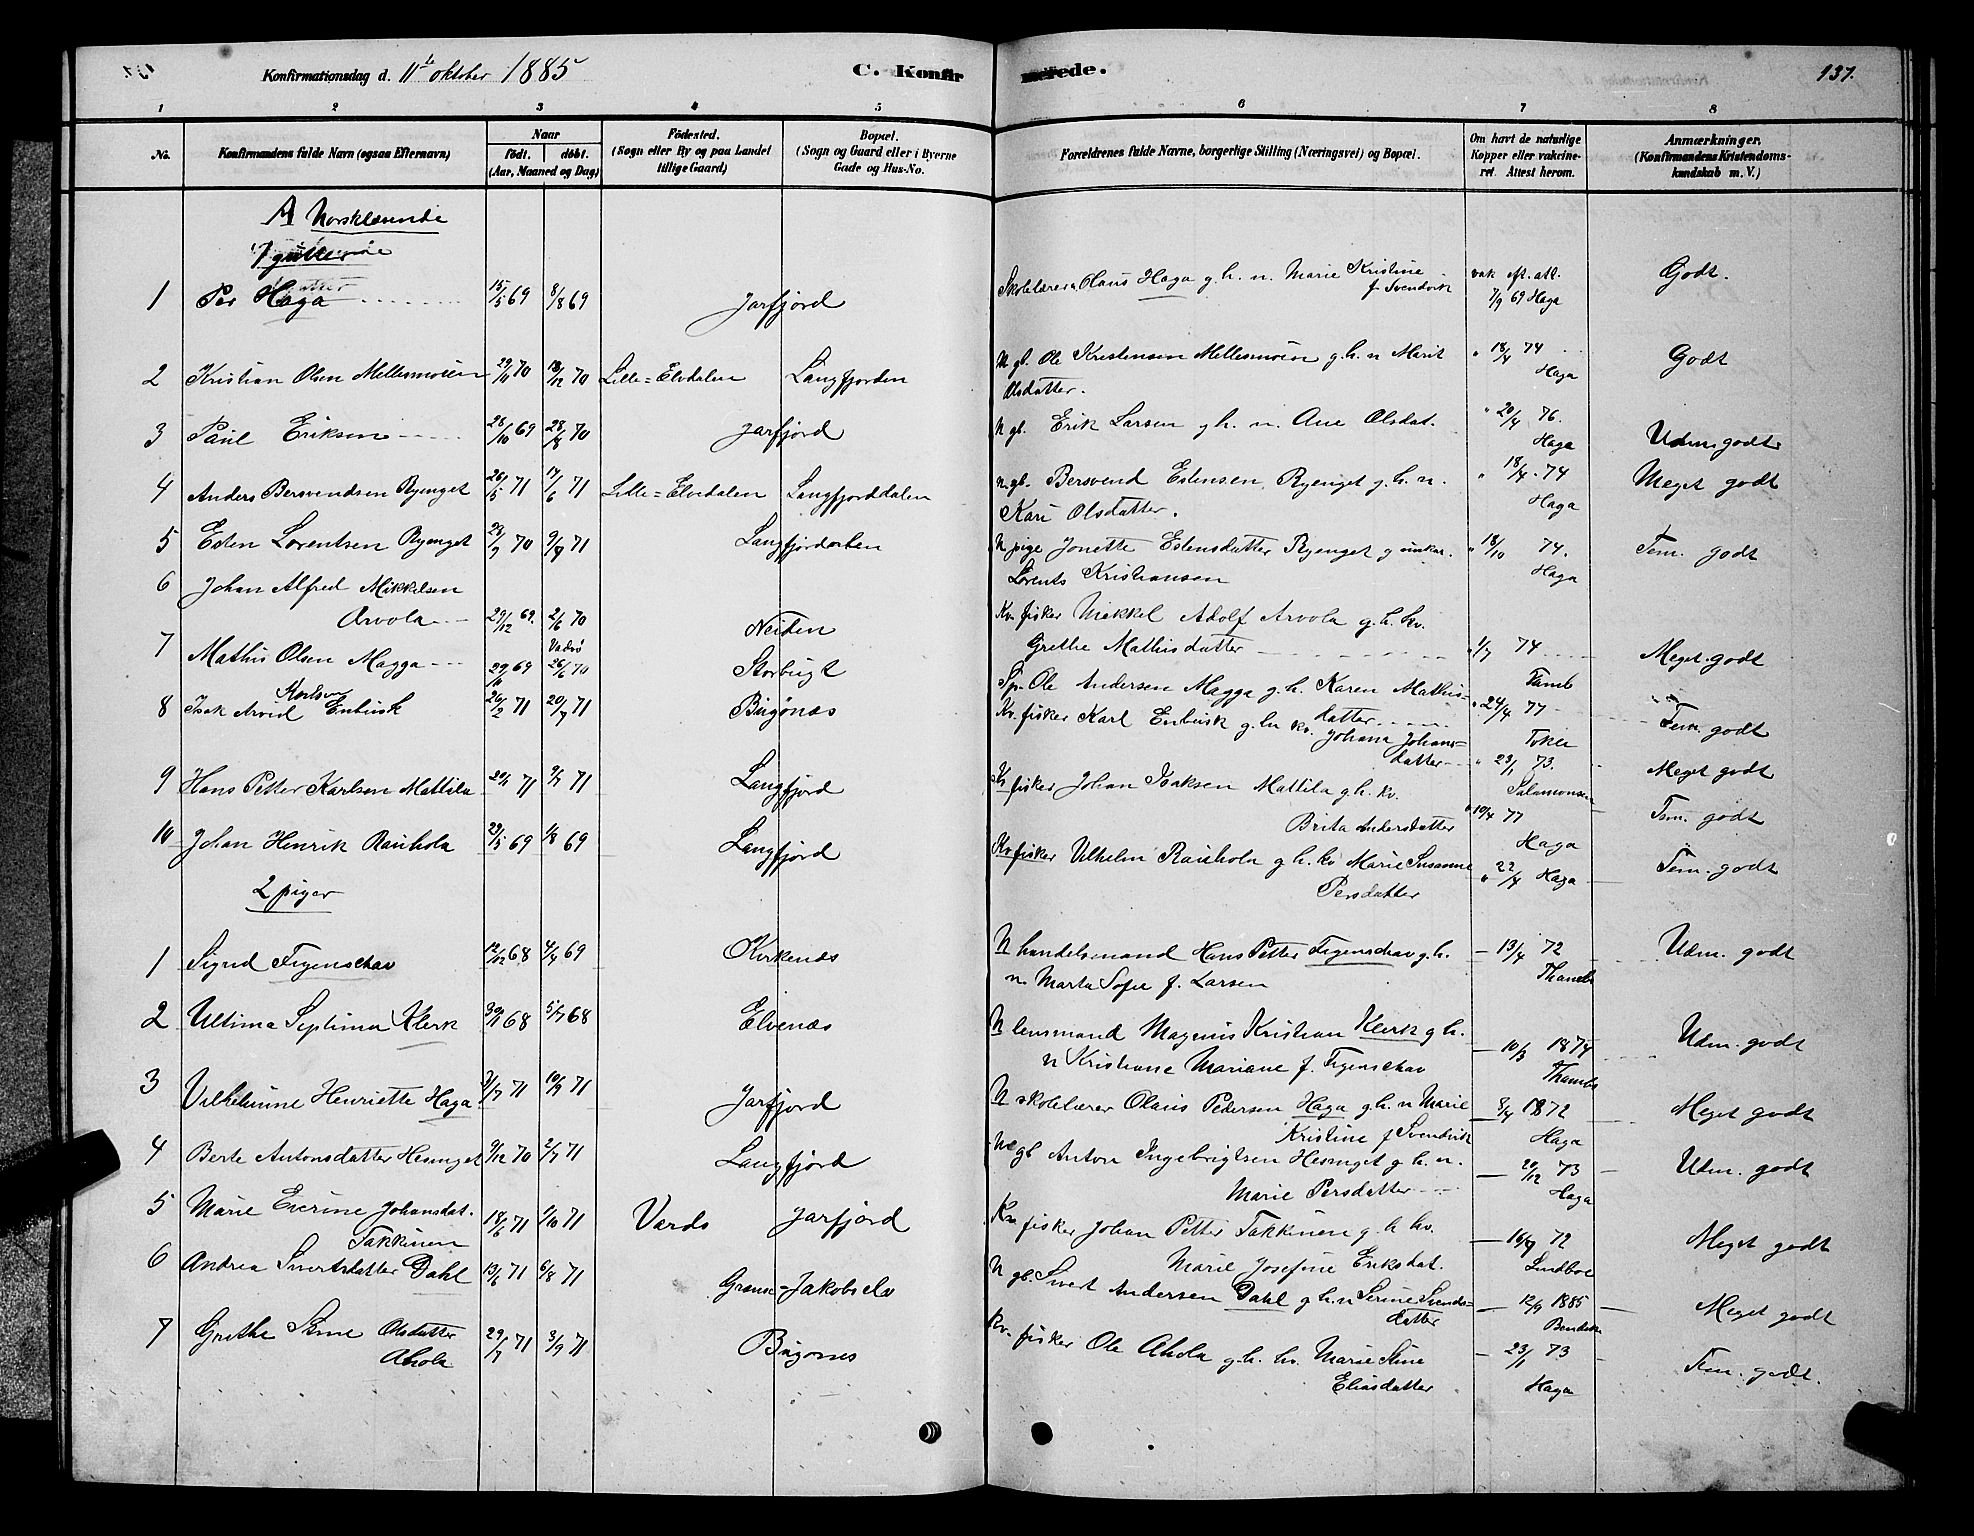 Konfirmationsdag d. 11te oktober 1885
C. Konfir
merede.
137.
1 2 3 4 5 6 7 8
No.
Konfirmandens fulde Navn (ogsaa Efternavn)
Naar
født. døbt.
(Aar, Maaned og Dag)
Fødested.
(Sogn eller By og paa Landet
tillige Gaard)
Bopæl.
(Sogn og Gaard eller i Byerne
Gade og Hus-No.
Forældrenes fulde Navne, borgerlige Stilling (Næringsvei) og Bopæl.
Om havt de naturlige
Kopper eller vakcine-
ret. Attest herom.
Anmærkninger.
(Konfirmandens Kristendoms-
kundskab m. V.)
A Norsklæsende
1 Per Haga 15/5 69 8/8 69 Jarfjord Skolelærer Olaus Haga g. h. n. Marie Kristine f. Svendvik vak. eft. att. 7/9 69 Haga Godt.
2 Kristian Olsen Mellesmoen 29/11 70 18/12 70 Lille-Elvdalen Langfjorden N gb. Ole Kristensen Mellesmoen g. h. n Marit Olsdatter. " 18/4 74 Haga Godt
3 Paul Eriksen 28/10 69 28/8 70 Jarfjord N gb. Erik Larsen g. h. n. Ane Olsdat. " 20/4 76. Haga Udm. godt
4 Anders Bersvendsen Ryenget 26/5 71 17/6 71 Lille-Elvedalen Langfjorddalen n. gb. Bersvend Estensen Ryenget g. h. n. Kari Olsdatter. " 18/4 74 Haga Meget godt
5 Esten Lorentsen Ryenget 70 9/7 71 Langfjordorben N pige Jonette Estensdatter Ryenget g unkar. Lorents Kristiansen " 18/10 74. Haga Tem. godt
6 Johan Alfred Mikkelsen Arvola 29/12 69. 2/6 70 Neiden Kv. fisker Mikkel Adolf Arvola g. h. kv. Grethe Mathisdatter " 1/7 74 Tamb Meget godt
7 Mathis Olsen Magga 29/11 69 Vadsø 26/6 70 Storbugt Spr. Ole Andersen Magga g. h. Karen Mathisdatter " 24/4 77 Toker Tem. godt
8 Isak Arvid Karlsen Enbusk 26/2 71 20/7 71 Bugønæs Kv. fisker Karl Enbusk g. h kv. Johana Johansdatter " 23/1 73. Salamonsen Meget godt
9 Hans Petter Karlsen Mattila 71 9/7 71 Langfjord Kv fisker Johan Isaksen Mattila g. h. kv. Brita Andersdatter " 10/4 77 Haga Tem. godt
10 Johan Henrik Rauhola 29/5 69 1/8 69 Langfjord Kv fisker Vilhelm Rauhola g. h. kv Marie Susanne Persdatter " 22/4 Haga Tem. godt
2 piger
1 Sigrid Figenschav 12/12 68 4/4 69 Kirkenæs N handelsmand Hans Petter Figenschav g. h. n. Marta Sofie f. Larsen 13/4 72 Thambs Udm. godt
2 Ultima Septima Klerk 30/1 68 5/7 68 Elvenæs N lensmand Magnus Kristian Klerk g. h. n Kristiane Mariane f. Figenschav 10/3 1874 Thambs Udm. godt
3 Vilhelmine Henriette Haga 3/7 71 10/9 71 Jarfjord N skolelærer Olaus Pedersen Haga g. h. n Marie Kristine f Svendvik 8/4 1872 Haga Meget godt
4 Berte Antonsdatter Hesinget 9/12 70 2/7 71 Langfjord N gb Anton Ingebrigtsen Hesinget g. h. n. Marie Persdatter 29/12 73 Haga Udm. godt
5 Marie Everine Johansdat. Takkinen 18/6 71 9/10 71 Vardø Jarfjord Kv fisker Johan Petter Takkinen g. h kv. Marie Josefine Eriksdat. 16/7 72 Lindboe Meget godt
6 Andrea Sivertsdatter Dahl 13/6 71 6/8 71 Grænse-Jakobselv N gb. Sivert Andersen Dahl g. h. n Serine Svendsdatter 12/9 1885 Meget godt
7 Grethe Stine Olsdatter Ahola 29/7 71 3/9 71 Bugønes Kv. fisker Ole Ahola g. h. kv. Marie Stine Eliasdatter 23/1 73 Haga Tem. godt.